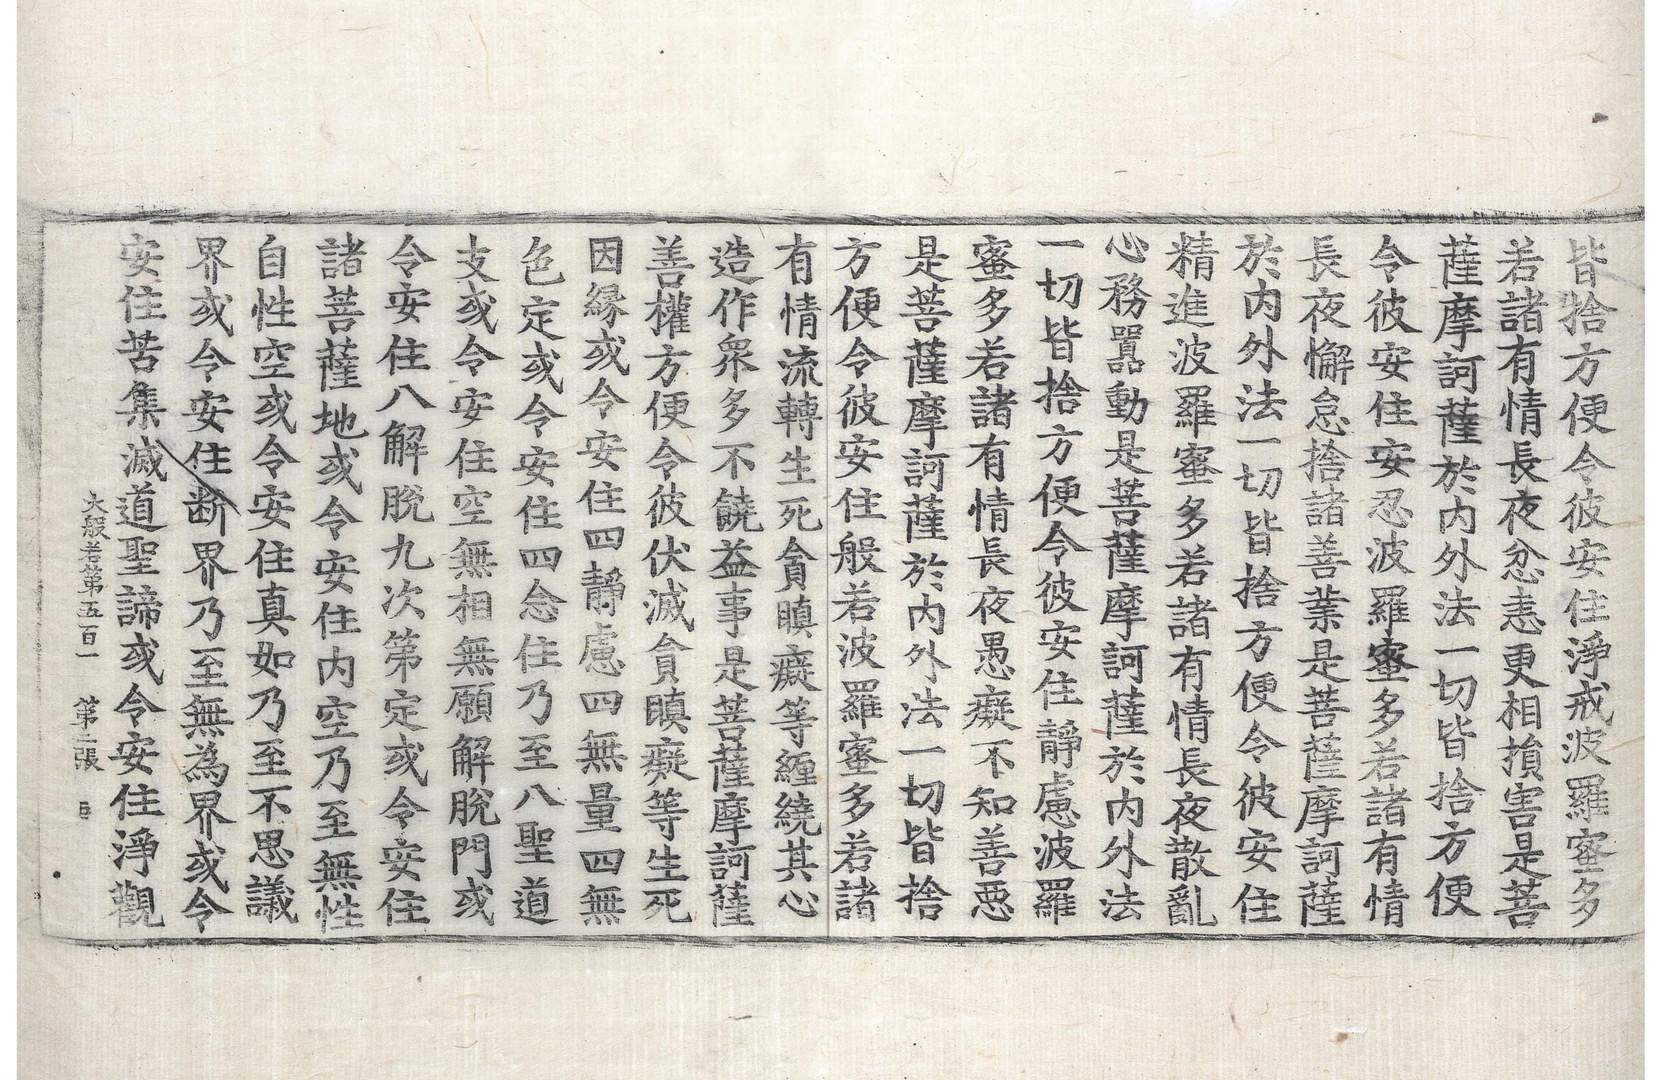 皆捨方便令彼安住淨戒波羅蜜多
若諸有情長夜忿恚更相損害是菩
薩摩訶薩於内外法一切皆捨方便
令彼安住安忍波羅蜜多若諸有情
長夜懈怠捨諸善業是菩薩摩訶薩
於内外法一切皆捨方便令彼安住
精進波羅蜜多若諸有情長夜散亂
心務囂動是菩薩摩訶薩於内外法
一切皆捨方便令彼安住靜慮波羅
蜜多若諸有情長夜愚癡不知善惡
是菩薩摩訶薩於内外法一切皆捨
方便令彼安住般若波羅蜜多若諸
有情流轉生死貪瞋癡等纏繞其心
造作衆多不饒益事是菩薩摩訶薩
善權方便令彼伏滅貪瞋癡等生死
因緣或令安住四靜慮四無量四無
色定或令安住四念住乃至八聖道
支或令安住空無相無願解脫門或
令安住八解脫九次第定或令安住
諸菩薩地或令安住内空乃至無性
自性空或令安住真如乃至不思議
界或令安住断界乃至無為界或令
安住苦集滅道聖諦或令安住淨觀
大般若第五百一 第二張